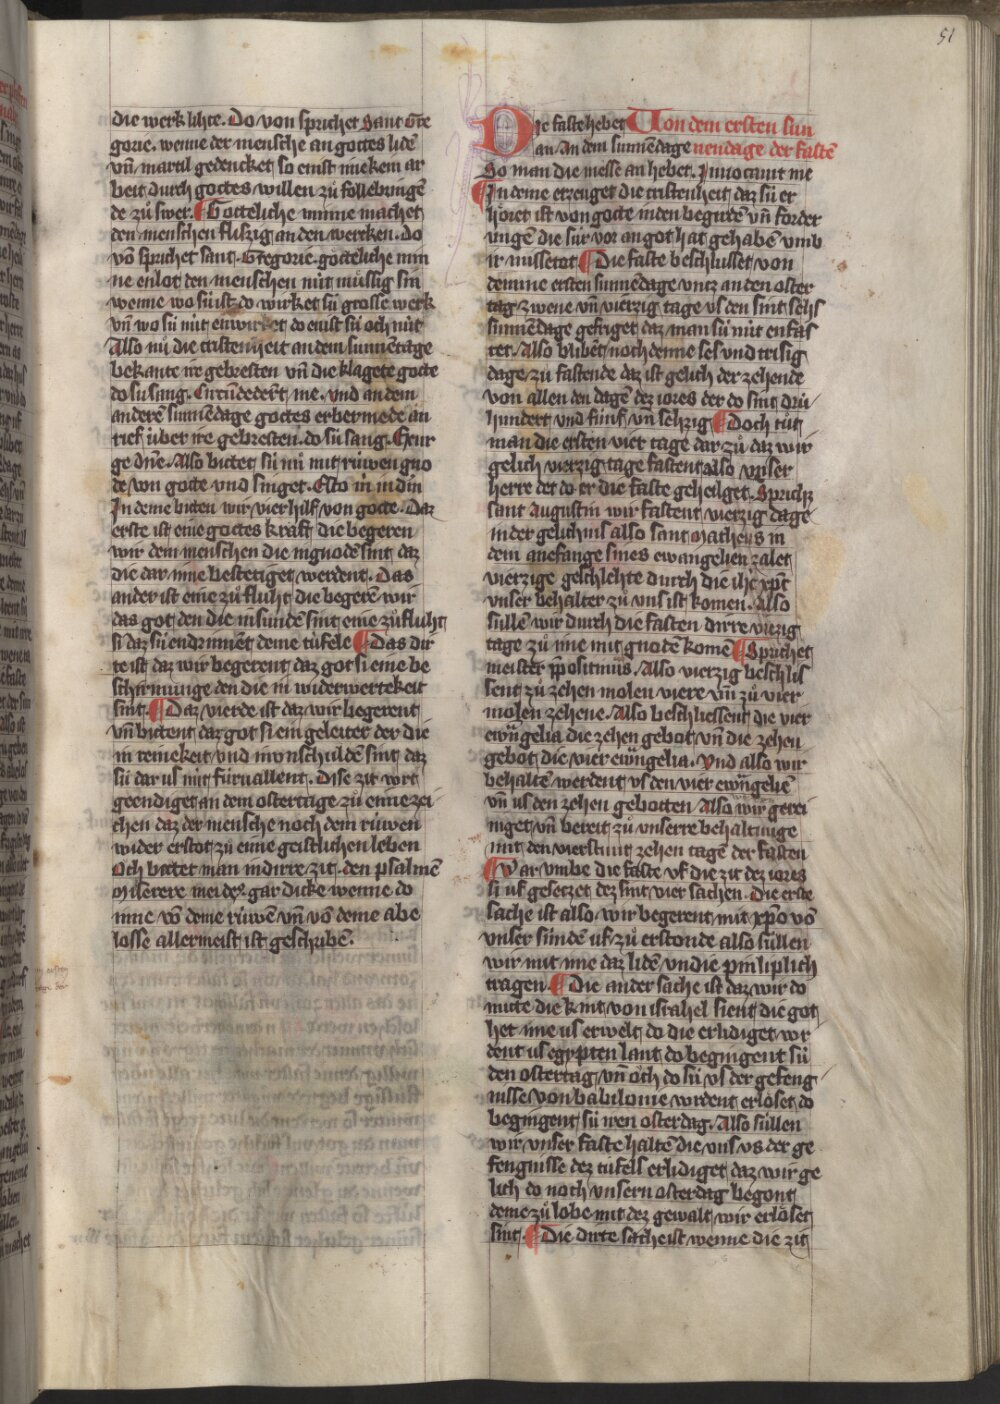 51
die werk lihte. Do von sprichet Sant Gre
gorie. wenne der mensche an gottes lidē
vn̄ martil gedencket so enist niekein ar
beit durch gottes willen zů follebringē
de zů swer. ¶ Gotteliche minne machet
den menschen fliszig an den wercken. do
vō sprichet sant. Gregorie. gotteliche min
ne enlot den menschen nüt müssig sin
wenne wo sü ist do wirket sü grosse werk
vn̄ wo sü nüt enwirket do enist sü och nüt
Also nů die cristenheit an dem sunnētage
bekante ire gebresten vn̄ die klagete gotte
do sü sang. Circūdederūt me. vnd an dem
anderē sunnēdage gottes erbermede an
rief über ire gebresten. do sü sang. Exur
ge dn̄e. Also bittet sü nů mit rüwen gno
de von gotte vnd singet. Esto in in dīn
In deme bitten wir vier hilf von gotte. Daz
erste ist eine gottes kraft die begeren
wir dem menschen die in gnodē sint daz
die dar inne bestetiget werdent. Das
ander ist eine zů fluht die begerē wir
das got den die in sündē sint eine zůfluht
si daz sü endrinnēt deme tüfele ¶ Das dir
te ist daz wir begerent daz got si eine be
schirmunge den die in widerwertekeit
sint. ¶ Daz vierde ist daz wir begerent
vn̄ bittent daz got si ein geleiter der die
in reinekeit vnd in vnschuldē sint daz
sü dar us nüt fürvallent. Dise zit wirt
geendiget an dem ostertage zů eime zei
chen daz der mensche noch dem rüwen
wider erstot zů eime geistlichen leben
Och bittet man in dirre zit. den psalmē
Miserere mei de9. gar dicke wenne do
inne vō deme rüwē vn̄ vō deme abe
losse allermeist ist geschribē.
Die faste hebet Von dem ersten sun
an. An dem sunnēdage nendage der fastē
So man die messe an hebet. Inuocauit me
¶ In deme erzeuget die cristenheit daz sü er
höret ist von gotte in den begirdē vn̄ forder
ungē die sür vor an got hat gehabē vmb
ir missetot ¶ Die faste beschlusset von
demme ersten sunnēdage vntz an den oster
tag zwene vn̄ vierzig tage vs den sint sehs
sunnēdage gefriget daz man sü nüt en fas
tet. Also blibēt noch denne ses vnd trisig
dage zů fastende daz ist gelich der zehende
von allen den dagē dez iores der do sint drü
hundert vnd fünf vn̄ sehzig ¶ Doch tůt
man die ersten vier tage dar zů daz wir
gelich vierzig tage fastent also vnser
herre det do er die faste geheilget. Sprichz
sant Augustin wir fastent vierzig dage
in der gelichnis also sant Matheus in
dem anefange sines ewangelien zalet
vierzige geschlehte durch die ihc xp̄c
vnser behalter zů uns ist komen. Also
süllē wir durch die fasten dirre virzig
tage zů ime mit gnodē kome ¶ Sprichet
meister p̄positiuus. Also vierzig beschlis
sent zů zehen molen viere vn̄ zů vier
molen zehene. Also beschliessent die vier
ewāgelia die zehen gebot vn̄ die zehen
gebot die vier ewāgelia. Vnd also wir
behaltē werdent vs den vier ewāgeliē
vn̄ us den zehen gebotten Also wir gerei
niget vn̄ bereit zů vnserre behaltunge
mit den vierstunt zehen tagē der fasten
¶ War vmbe die faste vf die zit dez iores
si uf gesetzet dez sint vier sachen. Die erste
sache ist also wir begerent mit xp̄o vō
vnser sündē uf zů erstonde also süllen
wir mit ime daz lidē vn die pin liplich
tragen. ¶ Die ander sache ist daz wir do
mitte die kint von israhel sient die got
het ime us erwelt do die erlidiget wr
dent us egypten lant do begingent sü
den ostertag vn̄ och do sü vs der gefeng
nisse von babilonie wrdent erlöset do
begingent sü iren osterdag. Also süllen
wir vnser faste haltē die vns vs der ge
fengnisse dez tüfels erlidiget daz wir ge
lich do noch vnsern osterdag begont
deme zů lobe mit dez gewalt wir erlöset
sint. ¶ Die dirte sache ist wenne die zit